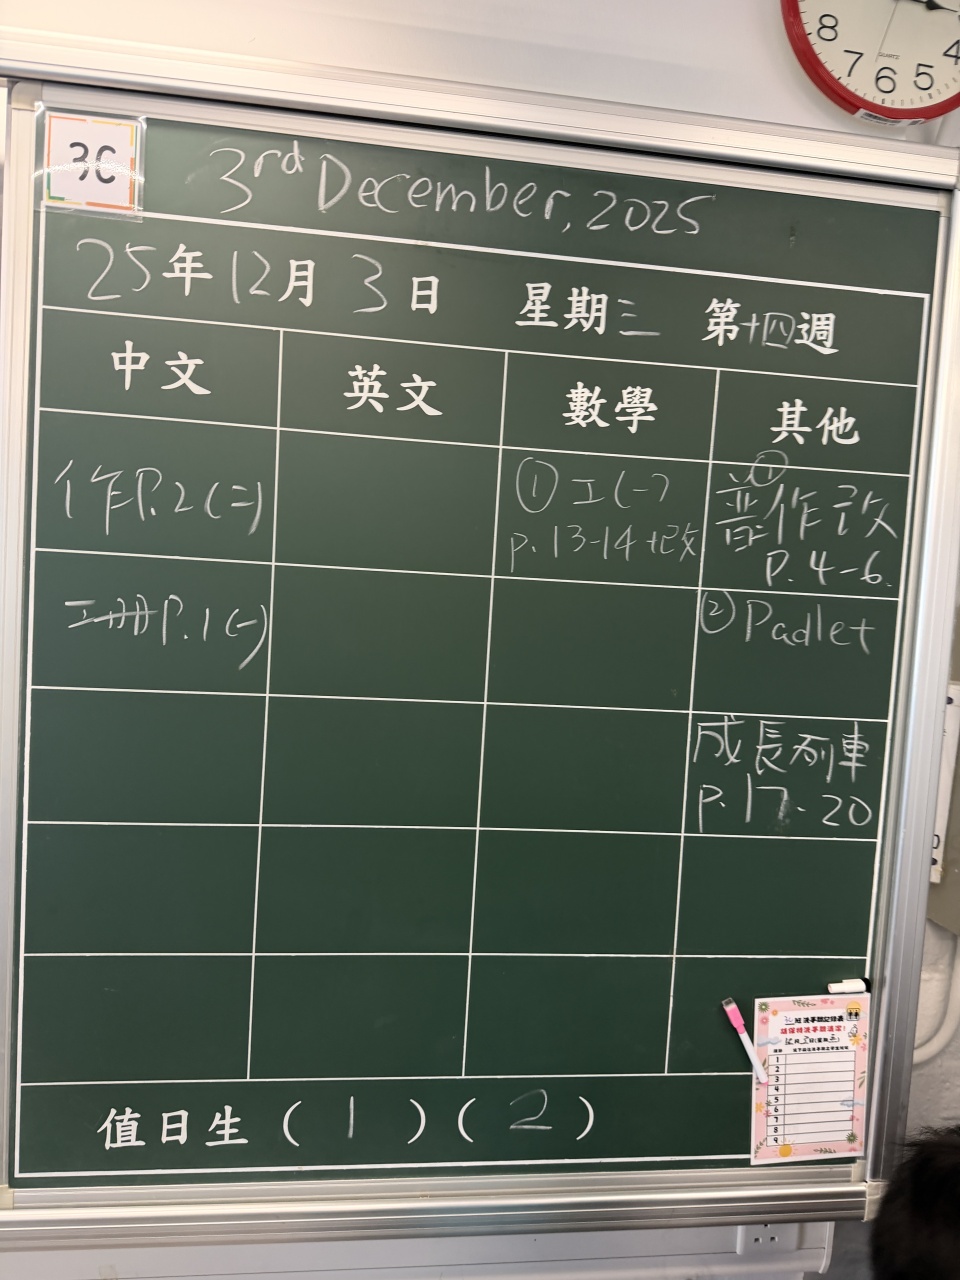 8
7
6
5
4
QUARTZ
3C
3rd December, 2025
25年12月3日 星期三 第十四週
中文 英文 數學 其他
作P.2(二) ① 工(一) p.13-14+改 ① 普作改 P.4-6.
工冊P.1(一) ② Padlet
成長列車
p.17-20
值日生(1)(2)
1
2
3
4
5
6
7
8
9